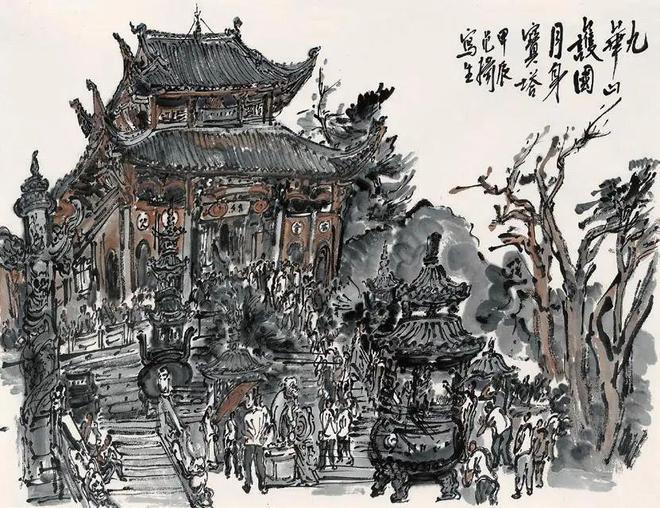 九華山
護國
月身
寶塔
甲辰
范揚
寫生